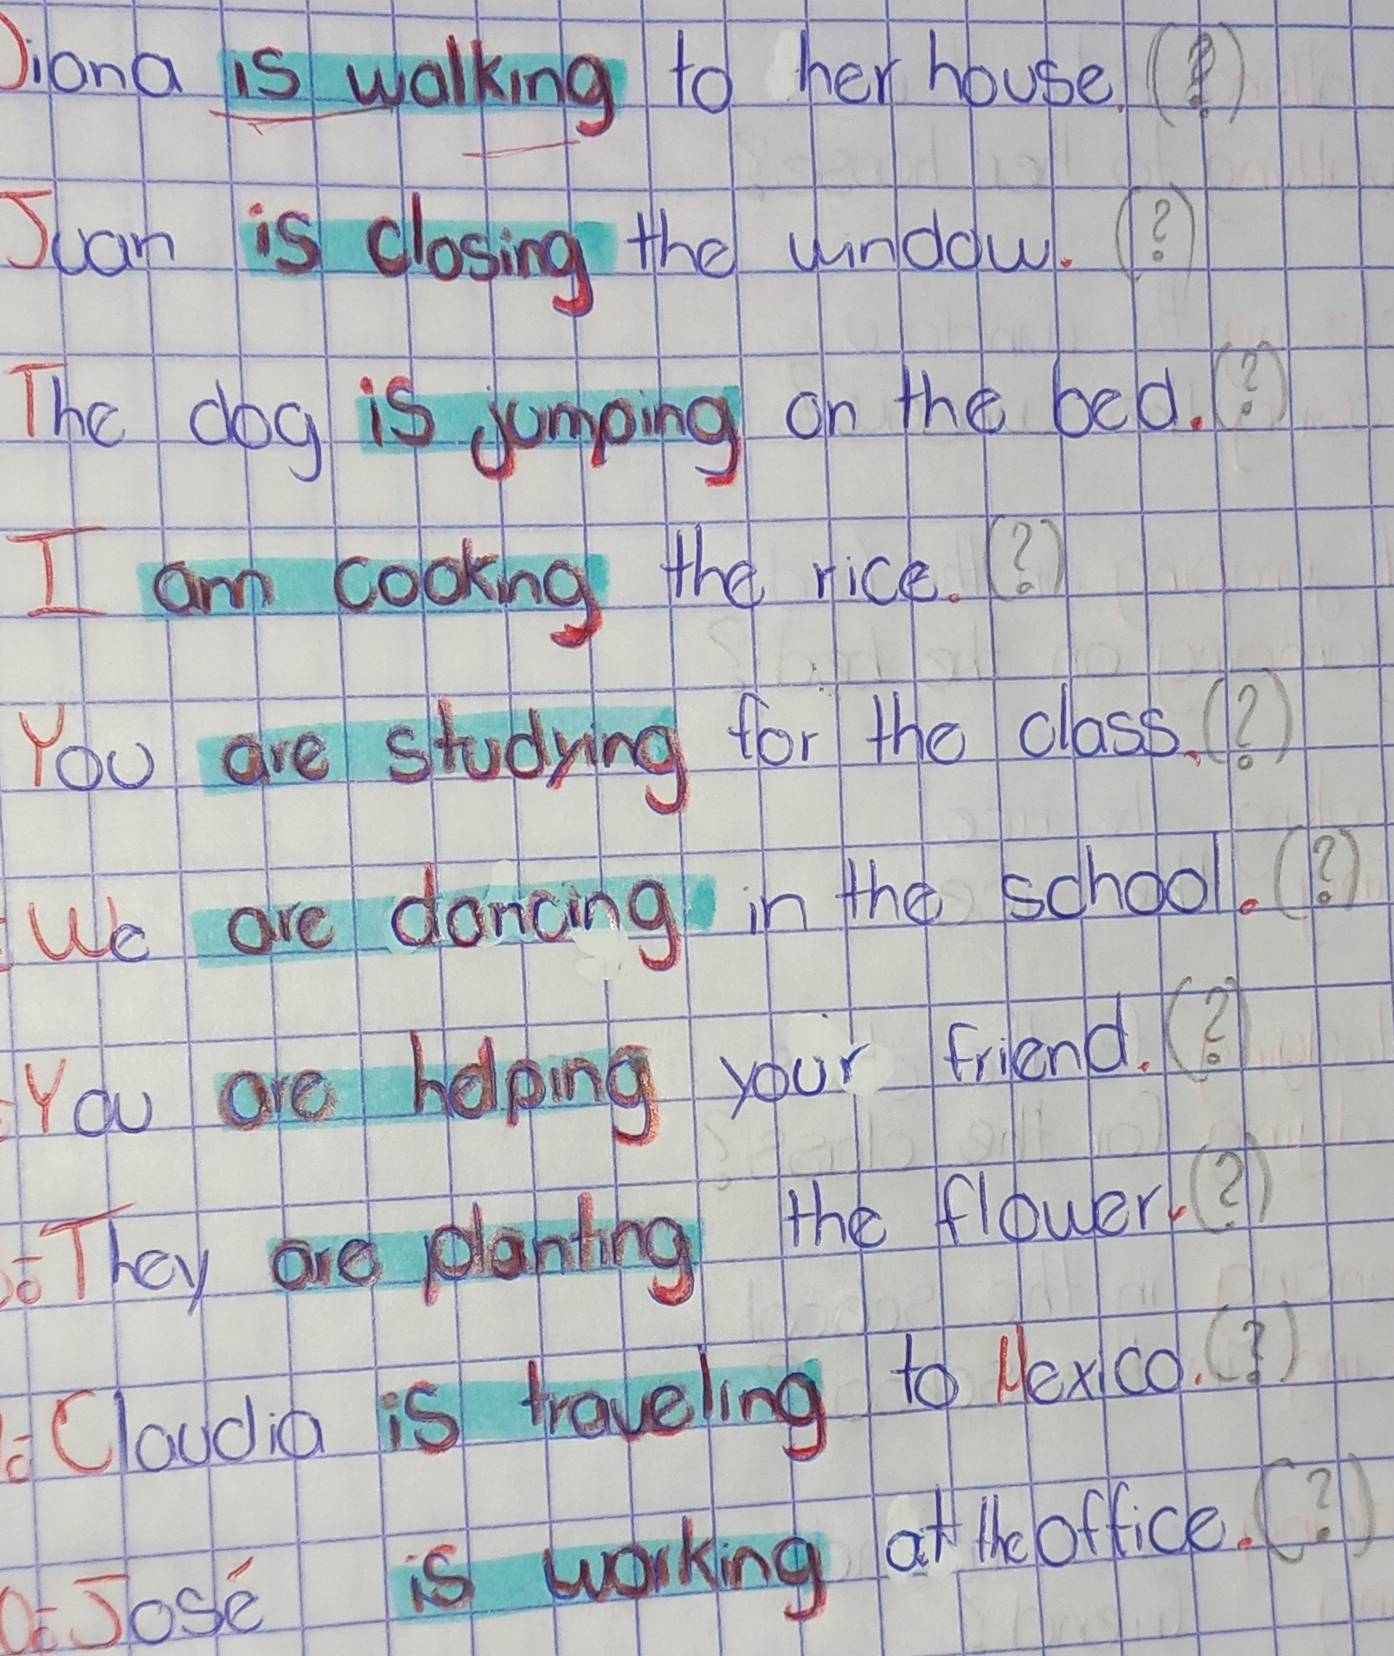 Diana is walking to her house. (?)
Juan is closing the window. (?)
The dog is jumping on the bed. (?)
I am cooking the rice. (?)
You are studying for the class. (?)
We are dancing in the school. (?)
You are helping your friend. (?)
They are planting the flower. (?)
Claudia is traveling to Mexico. (?)
José is working at the office. (?)